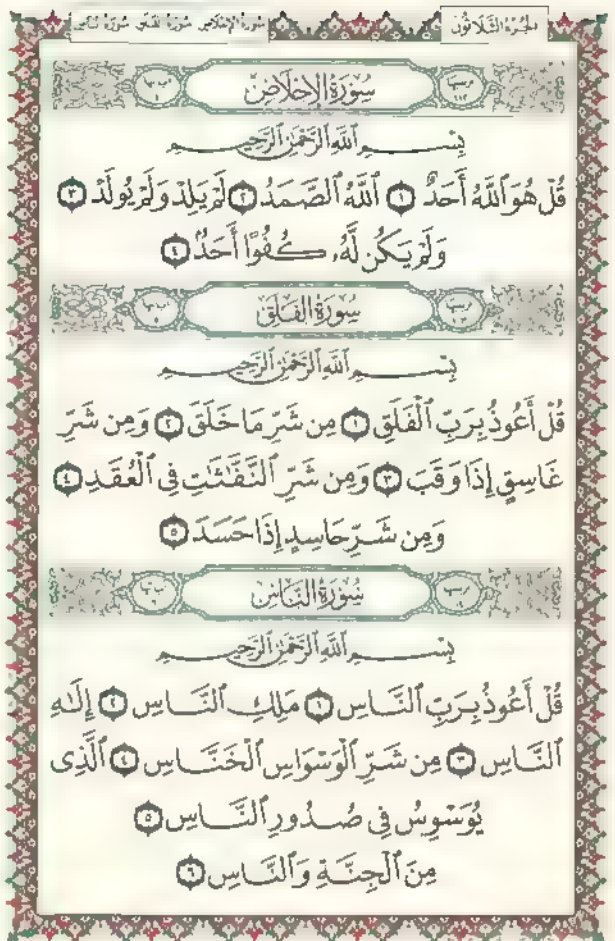 الجزء الثلاثون
سورة الإخلاص سورة الفلق سورة الناس
سُورَةُ الإِخْلَاصِ
بِسْمِ ٱللَّهِ ٱلرَّحْمَٰنِ ٱلرَّحِيمِ
قُلْ هُوَ ٱللَّهُ أَحَدٌ ١ ٱللَّهُ ٱلصَّمَدُ ٢ لَمْ يَلِدْ وَلَمْ يُولَدْ ٣
وَلَمْ يَكُن لَّهُۥ كُفُوًا أَحَدٌۢ ٤
سُورَةُ الفَلَقِ
بِسْمِ ٱللَّهِ ٱلرَّحْمَٰنِ ٱلرَّحِيمِ
قُلْ أَعُوذُ بِرَبِّ ٱلْفَلَقِ ١ مِن شَرِّ مَا خَلَقَ ٢ وَمِن شَرِّ
غَاسِقٍ إِذَا وَقَبَ ٣ وَمِن شَرِّ ٱلنَّفَّٰثَٰتِ فِى ٱلْعُقَدِ ٤
وَمِن شَرِّ حَاسِدٍ إِذَا حَسَدَ ٥
سُورَةُ النَّاسِ
بِسْمِ ٱللَّهِ ٱلرَّحْمَٰنِ ٱلرَّحِيمِ
قُلْ أَعُوذُ بِرَبِّ ٱلنَّاسِ ١ مَلِكِ ٱلنَّاسِ ٢ إِلَٰهِ
ٱلنَّاسِ ٣ مِن شَرِّ ٱلْوَسْوَاسِ ٱلْخَنَّاسِ ٤ ٱلَّذِى
يُوَسْوِسُ فِى صُدُورِ ٱلنَّاسِ ٥
مِنَ ٱلْجِنَّةِ وَٱلنَّاسِ ٦